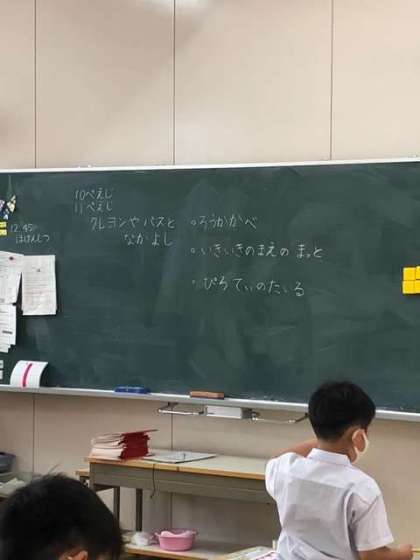 10ぺえじ
11ぺえじ
クレヨンや パスと
なかよし
12:45〜
ほけんしつ
•ろうかかべ
•いきいきのまえの まっと
•ぴろてぃのたいる